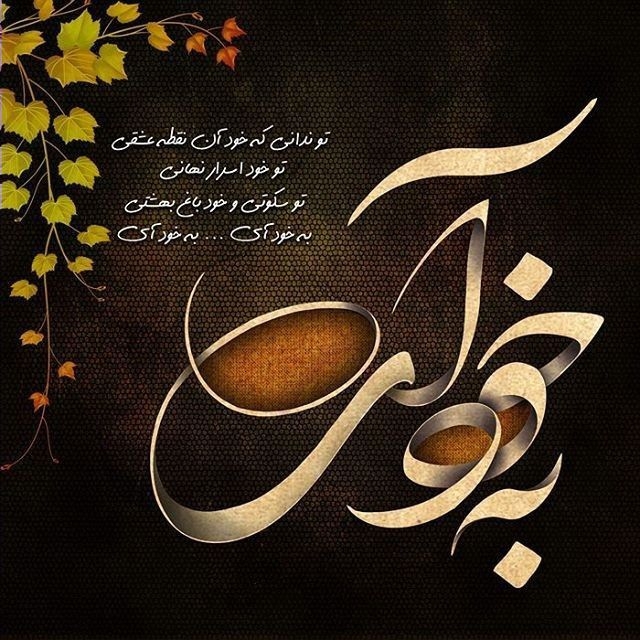 تو ندانی که خود آن نقطه عشقی
تو خود اسرار نهانی
تو سکوتی و خود باغ بهشتی
به خود آی ... به خود آی
به خود آی